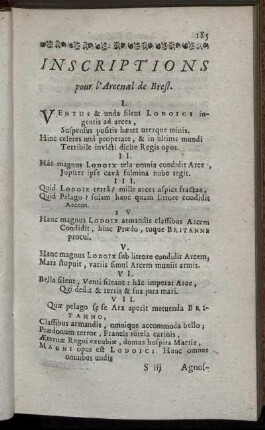 185
INSCRIPTIONS
pour l'Arcenal de Brest.
I.
VENTUS & unda silent LODOICI in-
gentis ad arces,
Suspensus positis hæret uterque minis.
Hinc celeres una properate, & in ultima mundi
Terribile invisi dicite Regis opus.
II.
Hâc magnus LODOIX tela omnia condidit Arce,
Jupiter ipse cavâ fulmina nube tegit.
III.
Quid LODOIX terrâ? mille arces aspice fractas,
Quid Pelago? solam hanc quam littore condidit
Arcem.
IV.
Hanc magnus LODOIX armandis classibus Arcem
Condidit, hinc Prædo, tuque BRITANNE
procul.
V.
Hanc magnus LODOIX sub littore condidit Arcem,
Mars stupuit, variis simul Arcem muniit armis.
VI.
Bella silent, Venti sileant: hâc imperat Arce,
Qui dedit & terris & sua jura mari.
VII.
Quæ pelago se se Arx aperit metuenda BRI-
TANNO,
Classibus armandis, omnique accommoda bello;
Prædonum terror, Francis tutela carinis,
Æternæ Regni excubiæ, domus hospita Martis,
MAGNI opus est LODOICI. Hunc omnes
omnibus undis
S iij Agnos-